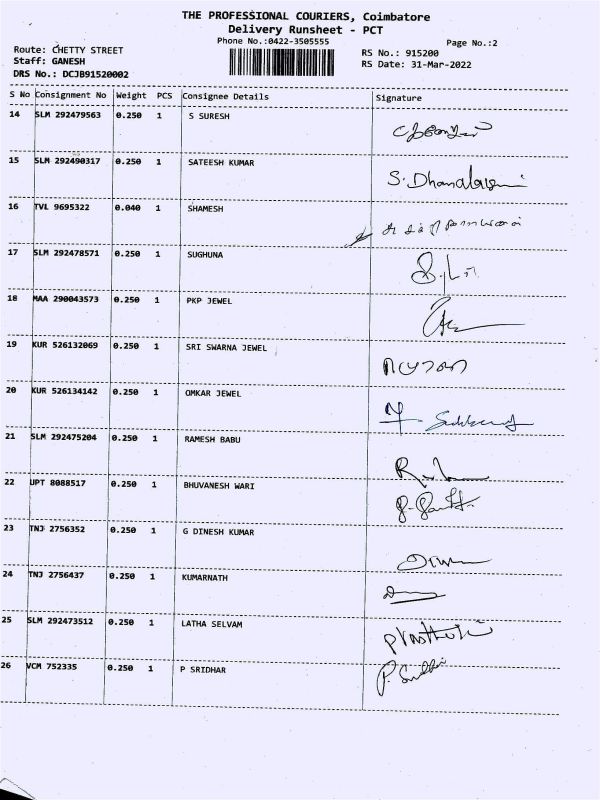 THE PROFESSIONAL COURIERS, Coimbatore
Delivery Runsheet - PCT
Phone No.:0422-3505555
Page No.:2
Route: CHETTY STREET
RS No.: 915200
Staff: GANESH
RS Date: 31-Mar-2022
DRS No.: DCJB91520002
S No Consignment No Weight PCS Consignee Details Signature
14 SLM 292479563 0.250 1 S SURESH
15 SLM 292490317 0.250 1 SATEESH KUMAR S. Dhanalaxmi
16 TVL 9695322 0.040 1 SHAMESH
17 SLM 292478571 0.250 1 SUGHUNA
18 MAA 290043573 0.250 1 PKP JEWEL
19 KUR 526132069 0.250 1 SRI SWARNA JEWEL
20 KUR 526134142 0.250 1 OMKAR JEWEL
21 SLM 292475204 0.250 1 RAMESH BABU
22 UPT 8088517 0.250 1 BHUVANESH WARI
23 TNJ 2756352 0.250 1 G DINESH KUMAR
24 TNJ 2756437 0.250 1 KUMARNATH
25 SLM 292473512 0.250 1 LATHA SELVAM
26 VCM 752335 0.250 1 P SRIDHAR P. Sridhar